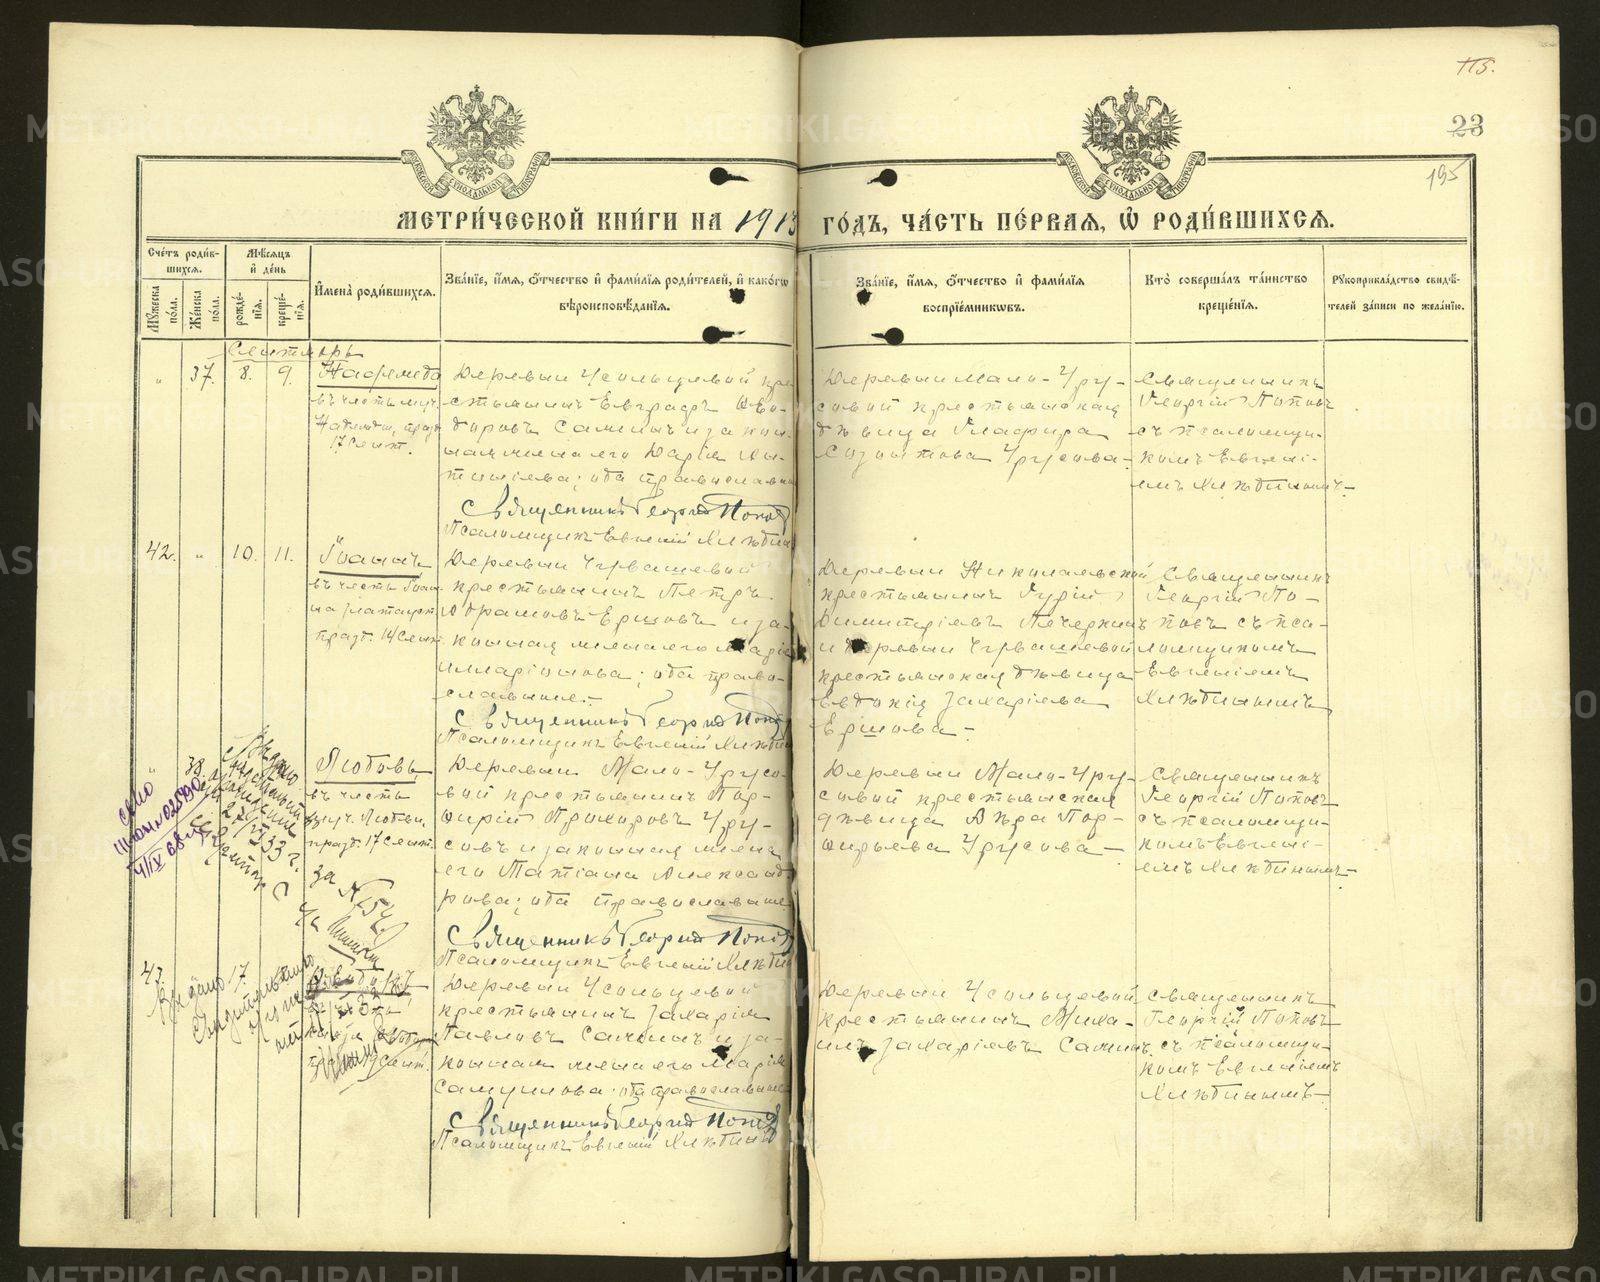 115.
23
195
МОСКОВСКОЙ СѴНОДАЛЬНОЙ ТИПОГРАФІИ
МОСКОВСКОЙ СѴНОДАЛЬНОЙ ТИПОГРАФІИ
МЕТРИ́ЧЕСКОЙ КНИ́ГИ НА 1913 ГО́ДЪ, ЧА́СТЬ ПЕ́РВАЯ, Ѽ РОДИ́ВШИХСЯ.
Сче́тъ роди́в-
шихся.
Мѣ́сяцъ
и҆ де́нь
Мꙋ́жеска по́ла.
Же́нска по́ла.
рожде́-
нїя.
креще́-
нїя.
И҆мена̀ роди́вшихся.
Зва́нїе, и҆́мя, ѻ҆́тчество и҆ фами́лїя роди́телей, и҆ како́гѡ
вѣроисповѣ́данїя.
Зва́нїе, и҆́мя, ѻ҆́тчество и҆ фами́лїя
воспрїе́мникѡвъ.
Кто̀ соверша́лъ та́инство
креще́нїя.
Рꙋкоприкла́дство свидѣ́-
телей за́писи по жела́нїю.
Сентябрь
„ 37. 8. 9.
Надежда
въ честь муч.
Надежды, празд.
17 Сент.
Деревни Усольцевой кре-
стьянинъ Евграфъ Ѳео-
доровъ Саминъ и закон-
ная жена его Дарія
оба православные
Священникъ Георгій Поповъ
Псаломщикъ Евгеній Хлѣбинъ
Деревни Мало-Уру-
совой крестьянская
дѣвица Глафира
Созонтова Урусова.
Священникъ
Георгій Поповъ
съ псаломщи-
комъ Евгені-
емъ Хлѣбинымъ.
42. „ 10. 11.
Іоаннъ
въ честь Іоан-
на Златоуст.
празд. 14 Сент.
Деревни Чувашевой
крестьянинъ Петръ
Абрамовъ Ершовъ и за-
конная жена его Марія
Илларіонова; оба право-
славные.
Священникъ Георгій Поповъ
Псаломщикъ Евгеній Хлѣбинъ
Деревни Николаевской
крестьянинъ Гурій
Димитріевъ Печеркинъ
и деревни Чувашевой
крестьянская дѣвица
Евдокія Захаріева
Ершова.
Священникъ
Георгій По-
повъ съ пса-
ломщикомъ
Евгеніемъ
Хлѣбинымъ
„ 38.
Любовь
въ честь
муч. Любви,
празд. 17 Сент.
Деревни Мало-Урусо-
вой крестьянинъ Пор-
фирій Прохоровъ Уру-
совъ и законная жена
его Татіана Александ-
рова; оба православные
Священникъ Георгій Поповъ
Псаломщикъ Евгеній Хлѣбинъ
Деревни Мало-Уру-
совой крестьянская
дѣвица Вѣра Пор-
фирьева Урусова
Священникъ
Георгій Поповъ
съ псаломщи-
комъ Евгені-
емъ Хлѣбинымъ.
Выдано
27/VII 33 г.
за № 254
43.
Выдано 17
Деревни Усольцевой
крестьянинъ Захарія
Павловъ Саминъ и за-
конная жена его Марія
Самуилова; оба православные
Священникъ Георгій Поповъ
Псаломщикъ Евгеній Хлѣбинъ
Деревни Усольцевой
крестьянинъ Миха-
илъ Захаріевъ Саминъ.
Священникъ
Георгій Поповъ
съ псаломщи-
комъ Евгеніемъ
Хлѣбинымъ
METRIKI.GASO-URAL.RU